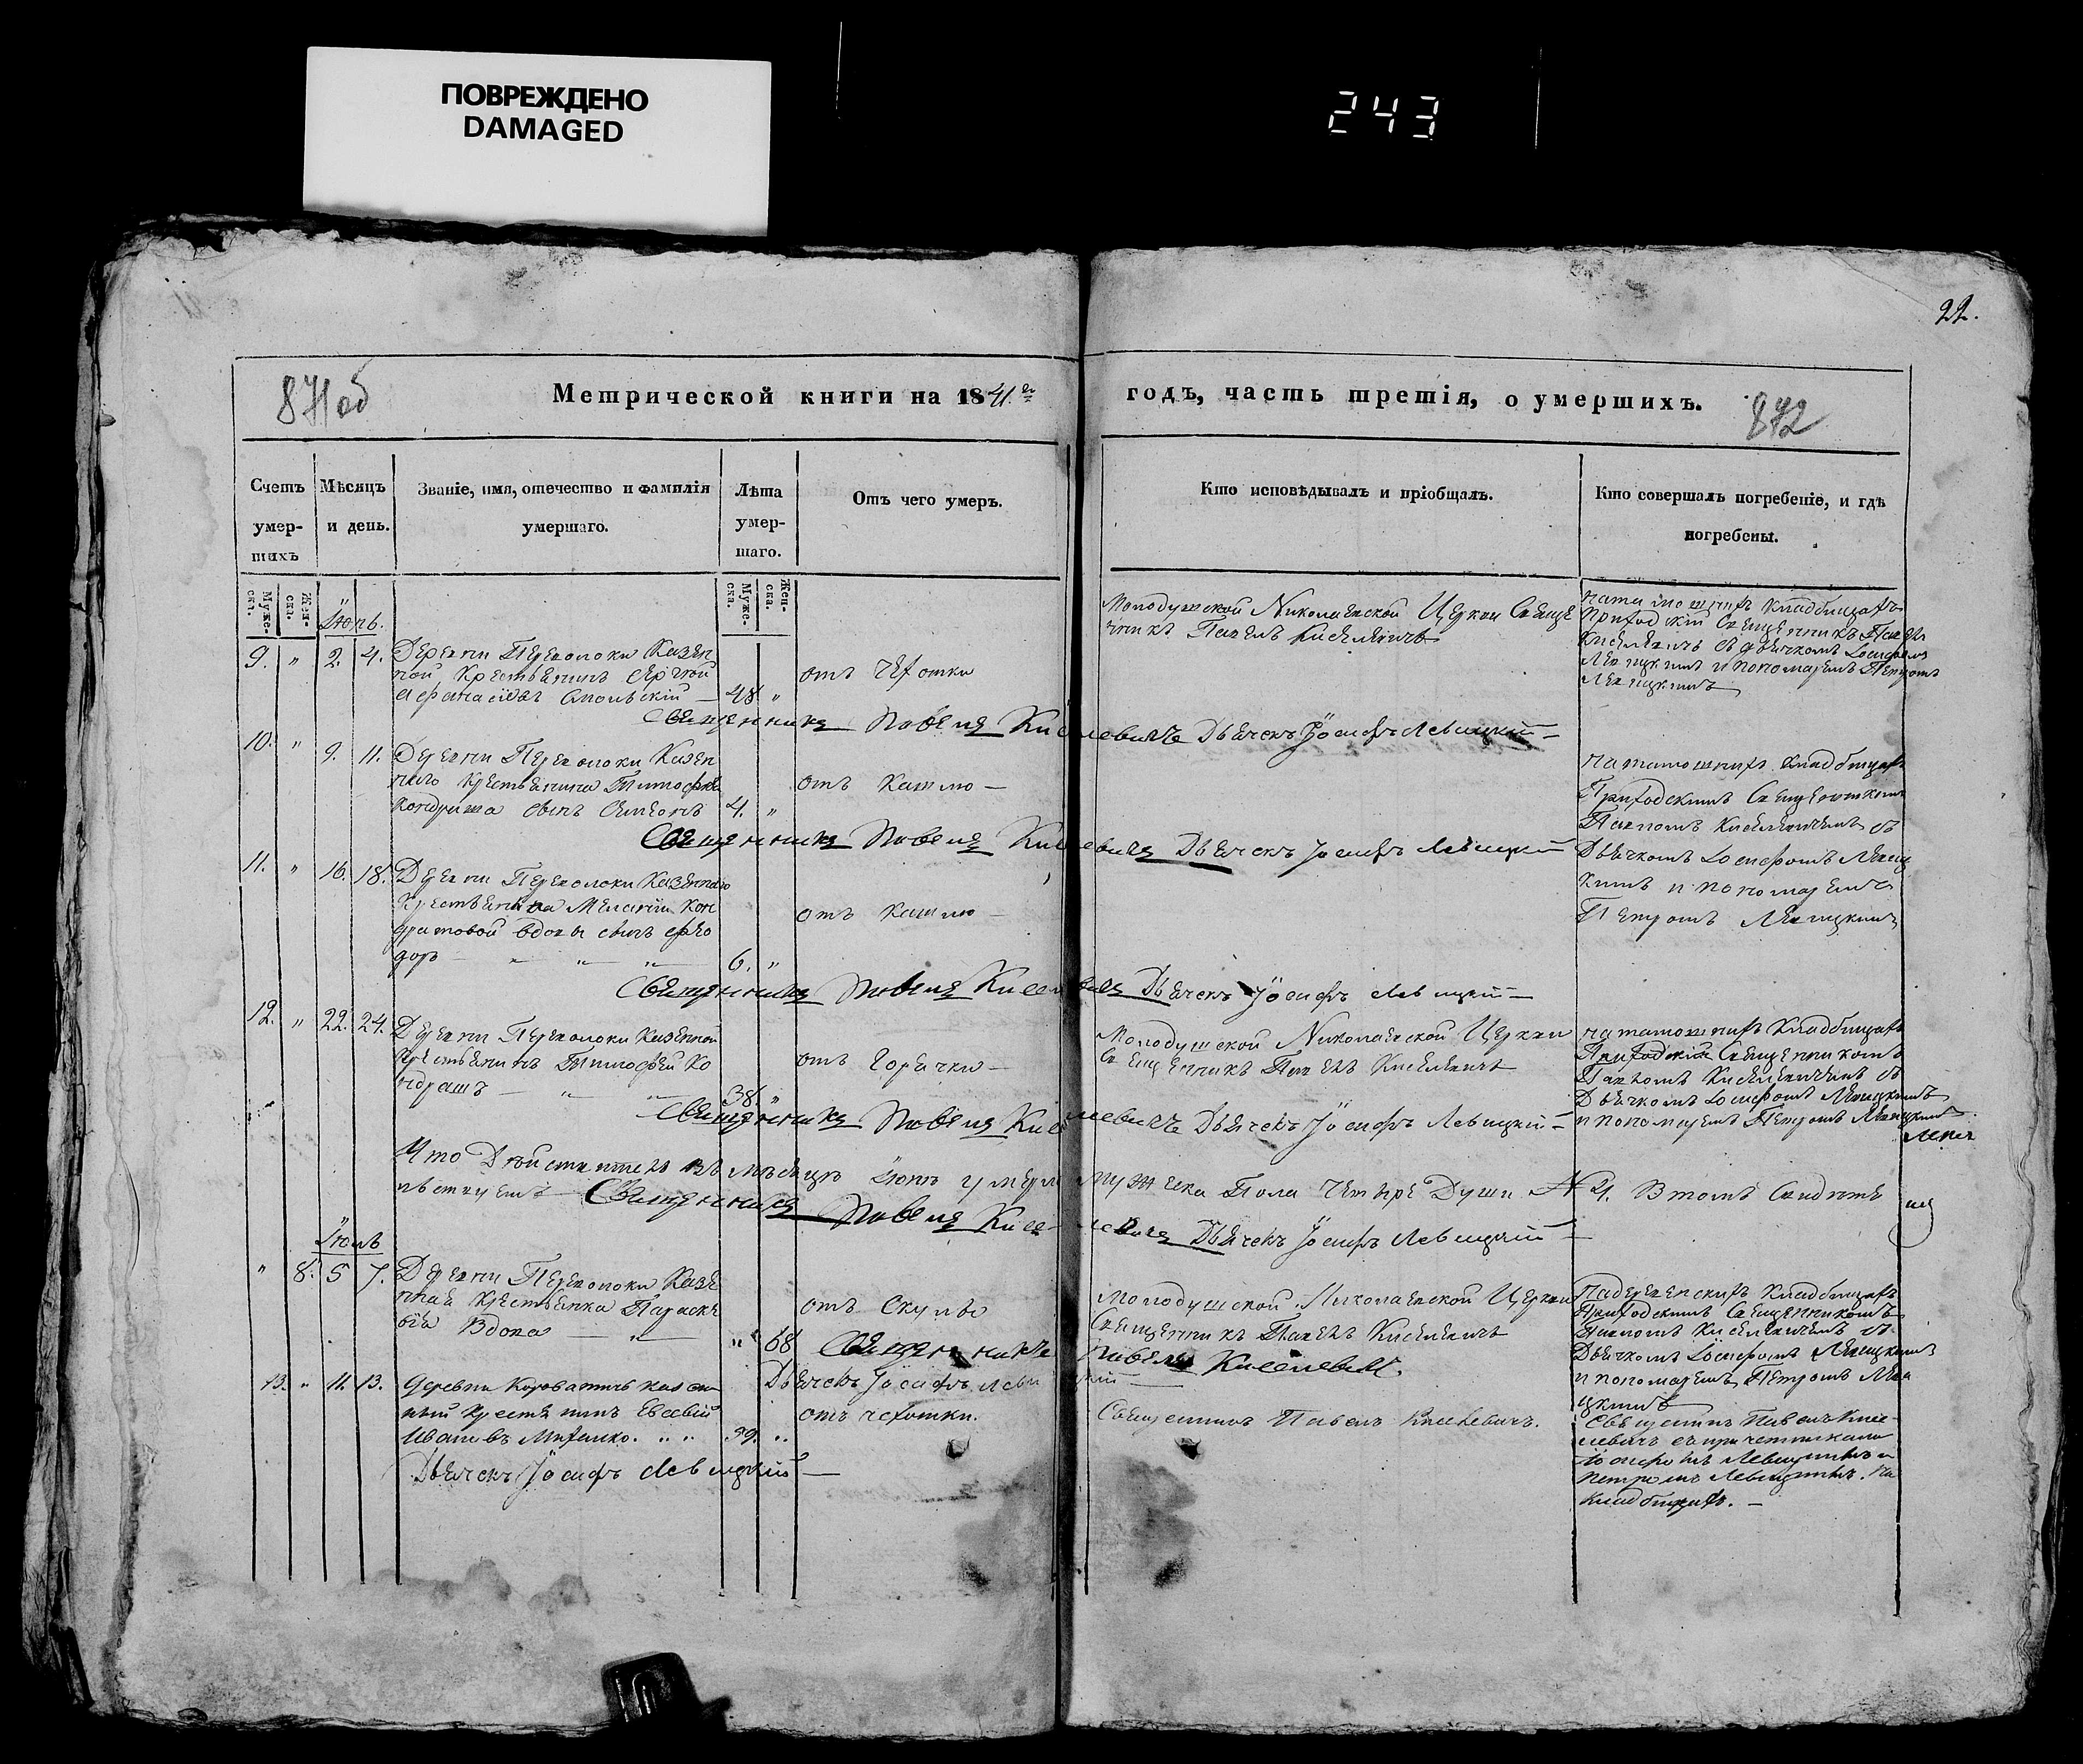 ПОВРЕЖДЕНО
DAMAGED
243
22.
871 об
Метрической книги на 1841 годъ, часть третія, о умершихъ.
872
Счетъ умер-шихъ
Мѣсяцъ и день.
Званіе, имя, отечество и фамилія умершаго.
Лѣта умер-шаго.
Отъ чего умеръ.
Кто исповѣдывалъ и пріобщалъ.
Кто совершалъ погребеніе, и гдѣ погребены.
Муже-ска.
Жен-ска.
Муже-ска.
Жен-ска.
Іюнь.
9. " 2. 4.
Деревни Переволоки Казен
ной Крестьянинъ
48 "
отъ чехотки
Молодушской Николаевской Церкви Свяще
нникъ Павелъ Киселевичъ
Приходскій Священникъ Павелъ
Киселевичъ съ дьячкомъ Іосифомъ
Левицкимъ и пономаремъ Петромъ
Левицкимъ
Священникъ Павелъ Киселевичъ Дьячекъ Іосифъ Левицкій
10. " 9. 11.
Деревни Переволоки Казен
наго Крестьянина Тимофея
Кондраша сынъ Симеонъ
4. "
отъ Кашлю
на тамошнихъ кладбищахъ
Приходскимъ Священникомъ
Павломъ Киселевичемъ съ
Дьячкомъ Іосифомъ Левиц
кимъ и пономаремъ
Петромъ Левицкимъ
Священникъ Павелъ Киселевичъ Дьячекъ Іосифъ Левицкій
11. " 16. 18.
Деревни Переволоки Казеннаго
Крестьянина Меланіи Кон
дратовой вдовы сынъ Ѳео
доръ
6. "
отъ кашлю
Священникъ Павелъ Киселевичъ Дьячекъ Іосифъ Левицкій
12. " 22. 24.
Деревни Переволоки Казенной
Крестьянинъ Тимофей Ко
ндрашъ
38. "
отъ Горячки
Молодушской Николаевской Церкви
Священникъ Павелъ Киселевичъ
на тамошнихъ Кладбищахъ
Приходскимъ Священникомъ
Павломъ Киселевичемъ съ
Дьячкомъ Іосифомъ Левицкимъ
и пономаремъ Петромъ Левицкимъ
Священникъ Павелъ Киселевичъ Дьячекъ Іосифъ Левицкій
Что Дѣйствительно въ мѣсяцѣ Іюнѣ умерло мужеска Пола Четыре Души № 4. В томъ Свидѣте
льствуемъ
Священникъ Павелъ Киселевичъ Дьячекъ Іосифъ Левицкій
Іюль
" 8. 5 7.
Деревни Переволоки Казе
нная Крестьянка Параске
вія Вдова
" 68
отъ Скулы
Молодушской Николаевской Церкви
Священникъ Павелъ Киселевичъ
на деревенскихъ Кладбищахъ
Приходскимъ Священникомъ
Павломъ Киселевичемъ съ
Дьячкомъ Іосифомъ Левицкимъ
и пономаремъ Петромъ Леви
цкимъ
Священникъ Павелъ Киселевичъ
Дьячекъ Іосифъ Левицкій
13. " 11. 13.
Деревни Короватичъ казен
ный крестьянинъ Евсевій
Ивановъ Михалко.
39. "
отъ чехотки.
Священникъ Павелъ Киселевичъ.
Священникъ Павелъ Кисе-
левичъ съ причетниками
Іосифомъ Левицкимъ и
Петромъ Левицкимъ. на
кладбищахъ.
Дьячекъ Іосифъ Левицкій